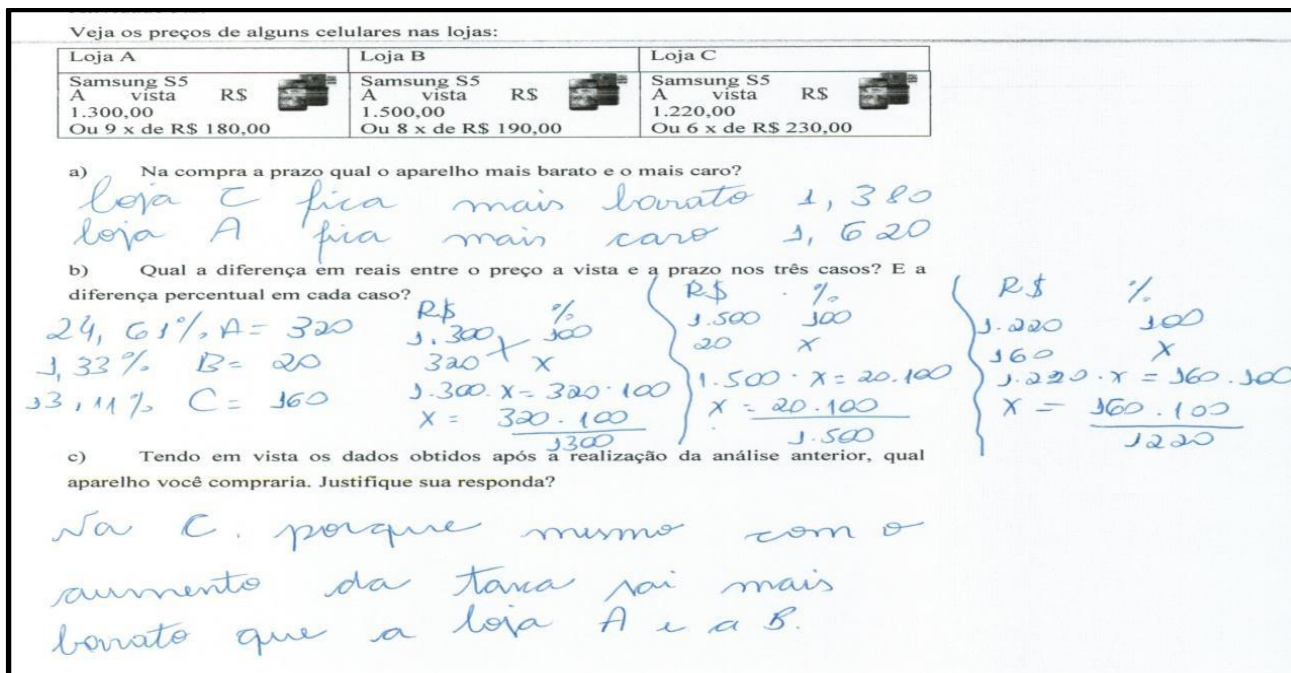 Veja os preços de alguns celulares nas lojas:
Loja A Loja B Loja C
Samsung S5 Samsung S5 Samsung S5
A vista R$ A vista R$ A vista R$
1.300,00 1.500,00 1.220,00
Ou 9 x de R$ 180,00 Ou 8 x de R$ 190,00 Ou 6 x de R$ 230,00
a) Na compra a prazo qual o aparelho mais barato e o mais caro?
loja C fica mais barato 1,380
loja A fica mais caro 1,620
b) Qual a diferença em reais entre o preço a vista e a prazo nos três casos? E a
diferença percentual em cada caso?
24,61% A= 320
1,33% B= 20
13,11% C= 160
R$ %
1.300 100
320 X
1.300.X=320.100
X = 320.100
1300
R$ %
1.500 100
20 X
1.500.X=20.100
X = 20.100
1.500
R$ %
1.220 100
160 X
1.220.X=160.100
X = 160.100
1220
c) Tendo em vista os dados obtidos após a realização da análise anterior, qual
aparelho você compraria. Justifique sua responda?
Na C. porque mesmo com o
aumento da taxa sai mais
barato que a loja A e a B.